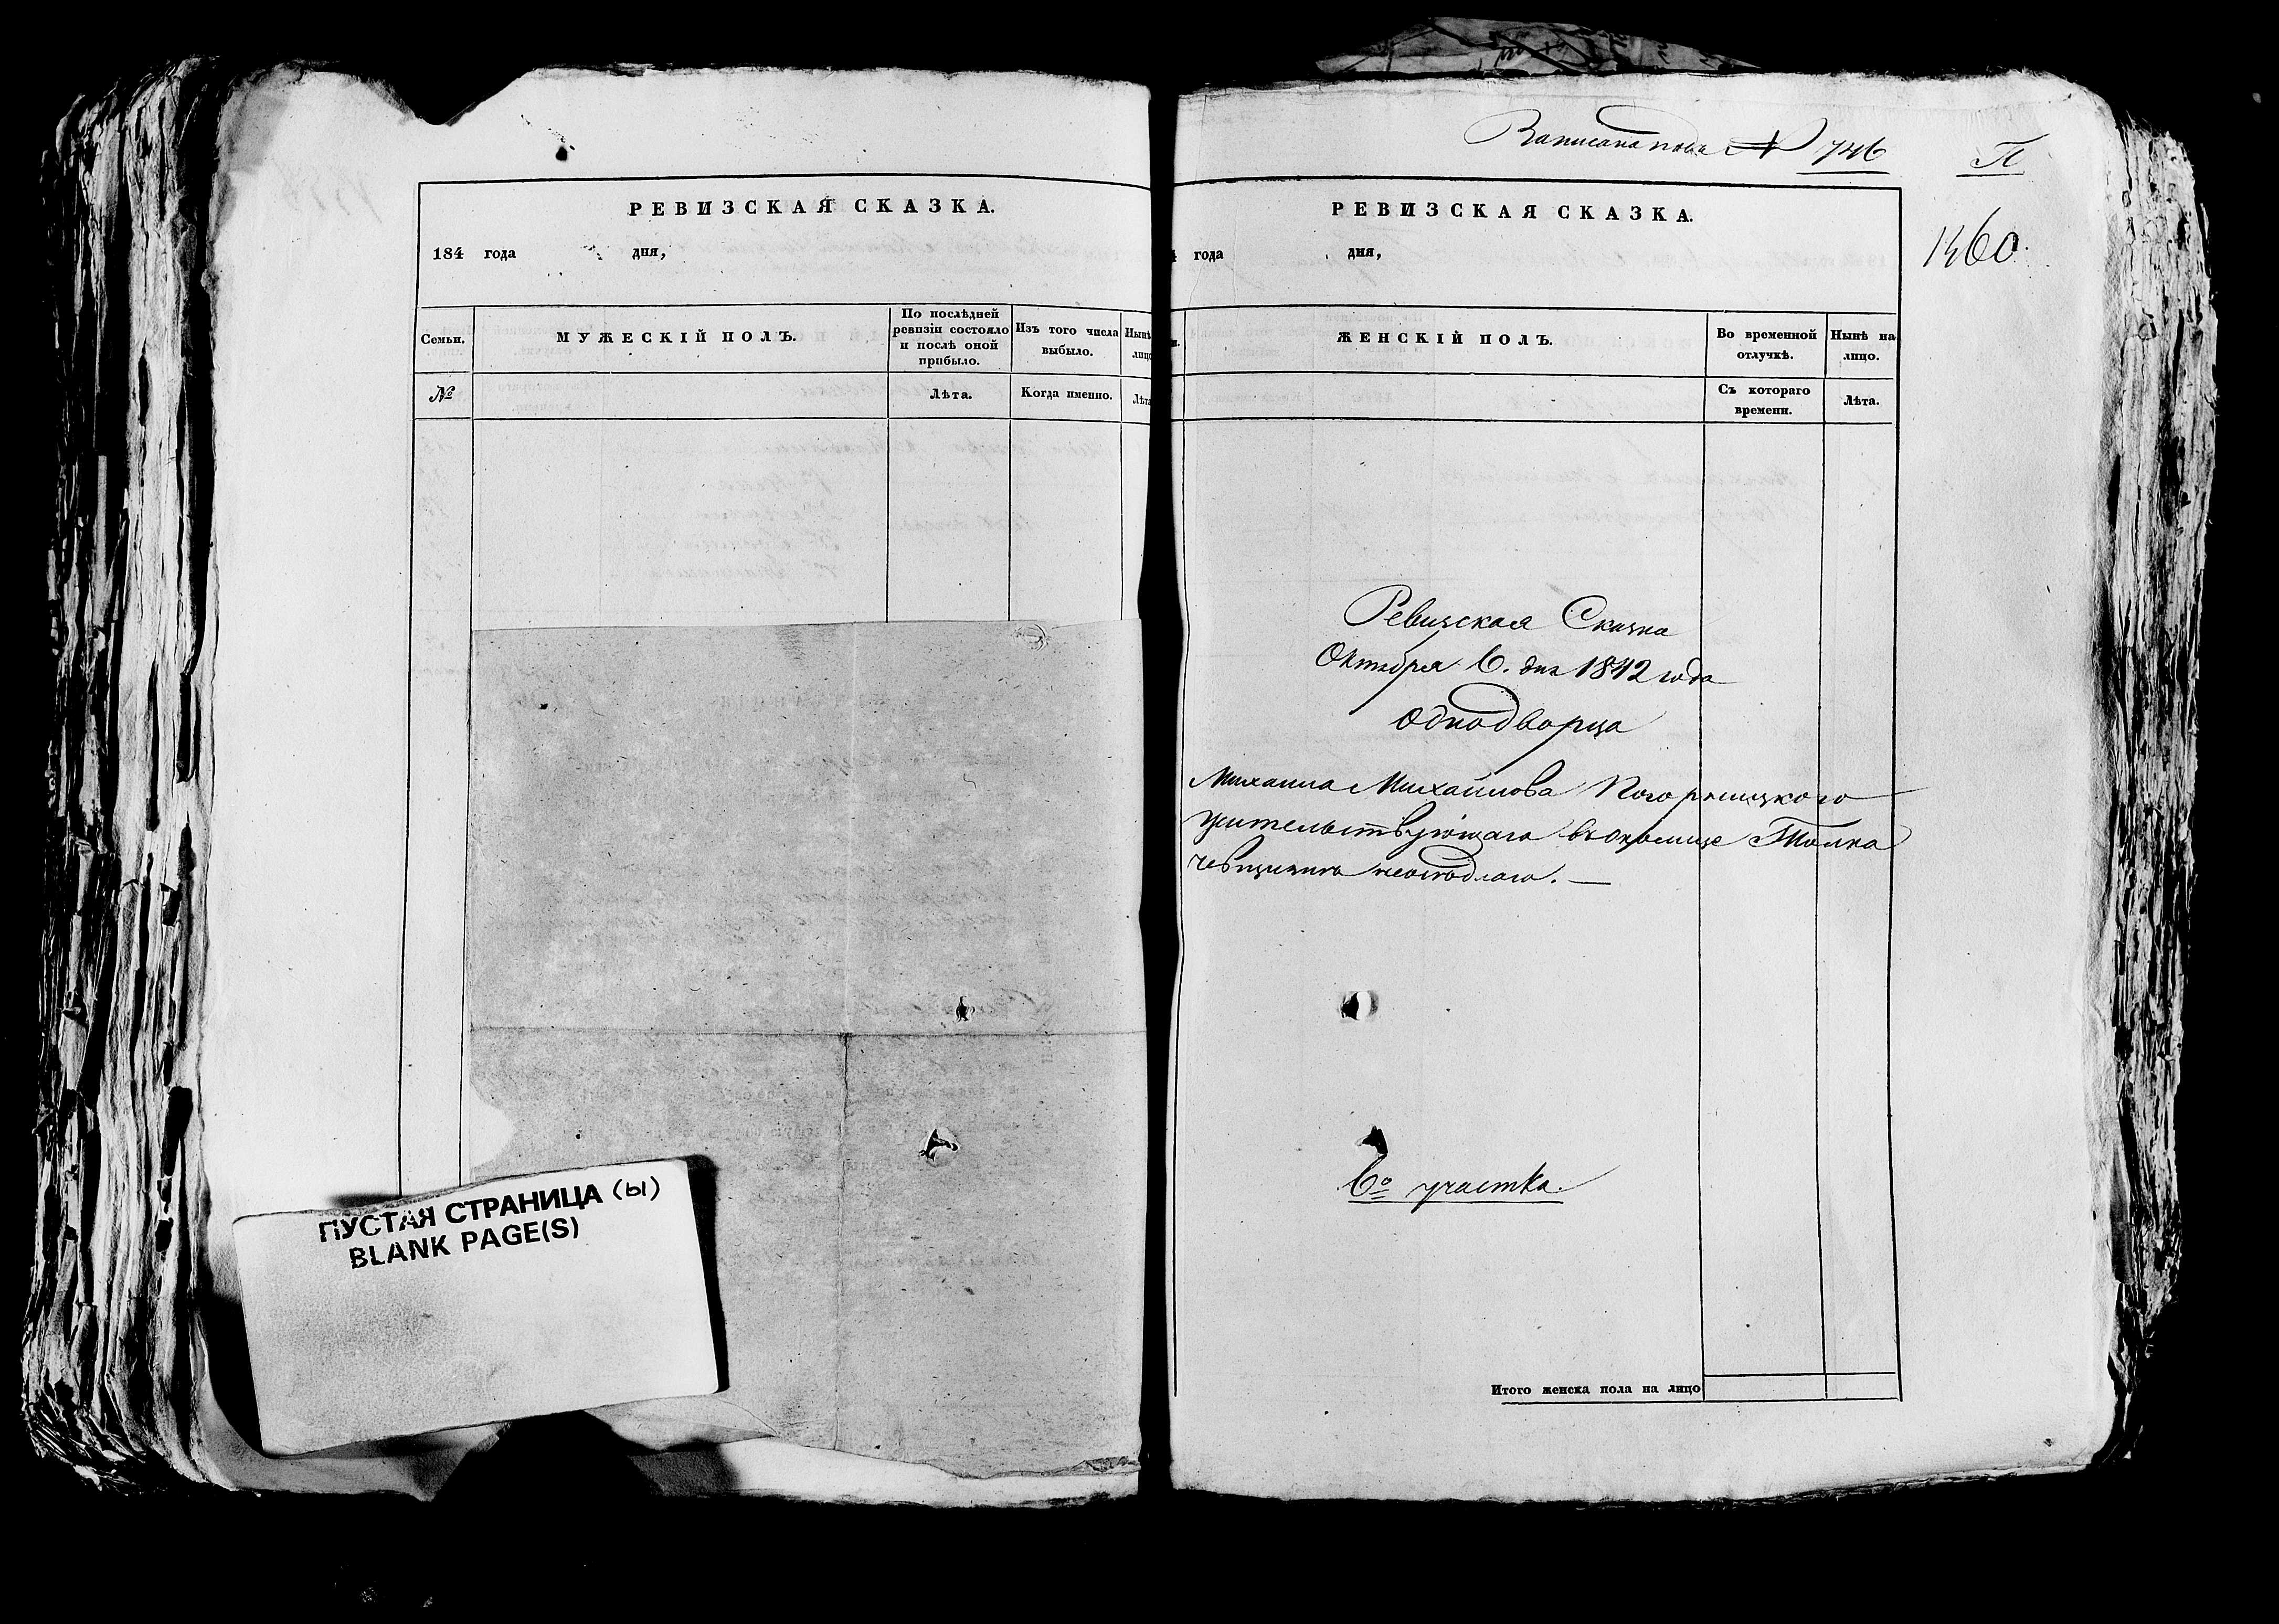 РЕВИЗСКАЯ СКАЗКА.
184 года дня,
Семьи.
МУЖЕСКІЙ ПОЛЪ.
По послѣдней
ревизіи состояло
и послѣ оной
прибыло.
Изъ того числа
выбыло.
Нынѣ
лицо
№
Лѣта.
Когда именно.
Лѣта
ПУСТАЯ СТРАНИЦА (Ы)
BLANK PAGE(S)
Записана подъ № 746
П
1360.
РЕВИЗСКАЯ СКАЗКА.
года дня,
ЖЕНСКІЙ ПОЛЪ.
Во временной
отлучкѣ.
Нынѣ на
лицо.
Съ котораго
времени.
Лѣта.
Ревизская Сказка
Октября 6. дня 1842 года
Однодворца
Михаила Михайлова
жительствующаго въ околице Толка
6о участка.
Итого женска пола на лицо